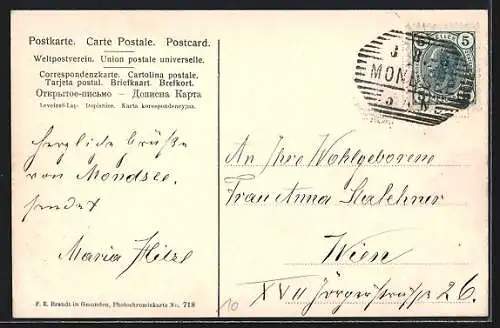 Postkarte. Carte Postale. Postcard.
Weltpostverein. Union postale universelle.
Correspondenzkarte. Cartolina postale.
Tarjeta postal. Briefkaart. Brefkort.
Открытое-письмо — Дописна Карта
Levelező-Lap. Dopisnice. Karta korespondencyjna.
Herzliche Grüße
von Mondsee.
sendet
Maria
F. E. Brandt in Gmunden, Photochromiekarte No. 718
10
5
MON
An Ihre Wohlgeborene
Frau Anna
Wien
XVII Jörgerstrasse 26.